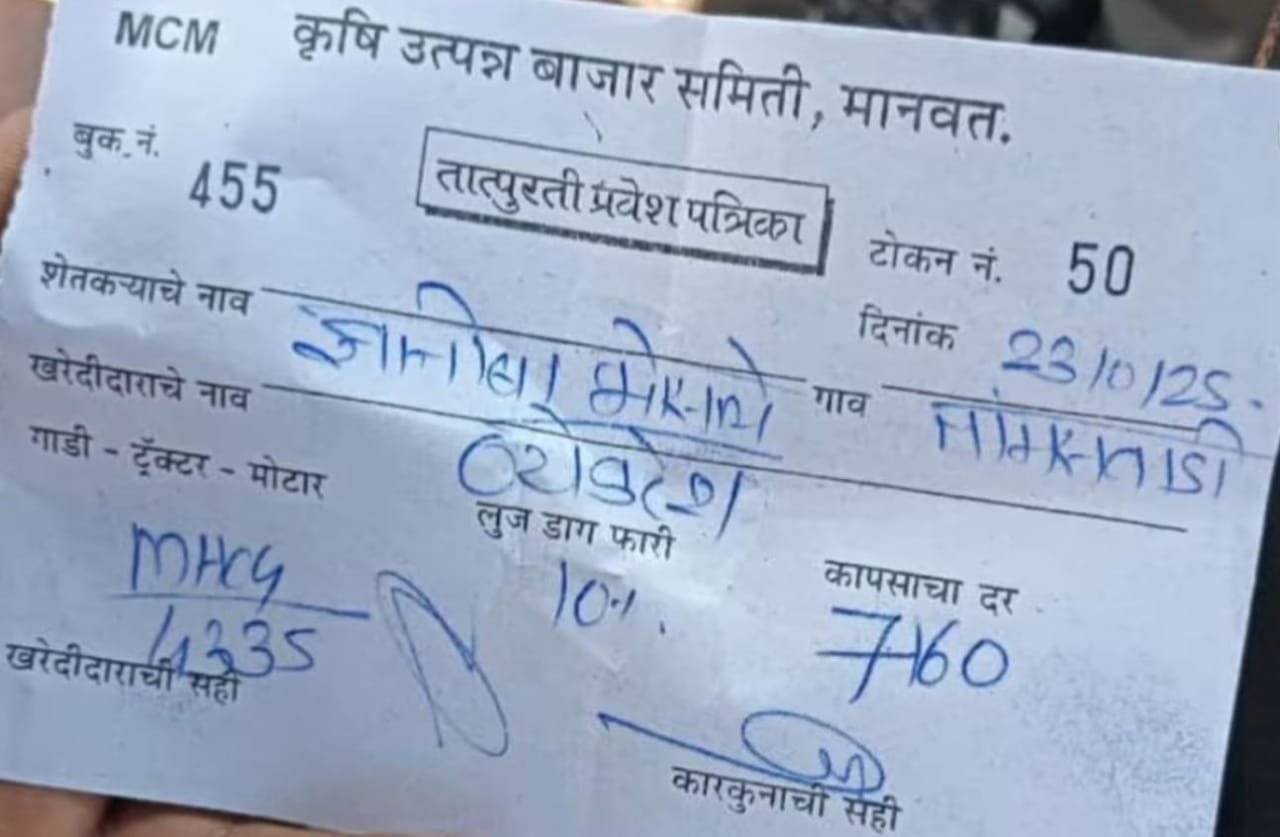 MCM कृषि उत्पन्न बाजार समिती, मानवत.
बुक नं. 455
तात्पुरती प्रवेश पत्रिका
टोकन नं. 50
शेतकऱ्याचे नाव
दिनांक 23/10/25.
खरेदीदाराचे नाव
गाव
गाडी - ट्रॅक्टर - मोटार
लुज डाग फारी
10%.
कापसाचा दर
7160
4335
खरेदीदाराची सही
कारकुनाची सही